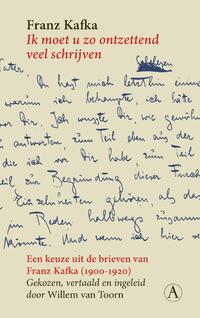 Franz Kafka
Ik moet u zo ontzettend
veel schrijven
Schelesen
Vater
Du hast mich letzthin einma
warum ich behaupte, ich hätte
vor Dir. Ich wusste Dir, wie gewöhn
antworten, zum Teil eben aus der
die ich vor Dir habe, zum Teil
zur Begründung dieser Furc
Einzelheiten gehören, als das
im Reden halbwegs zusamm
könnte. Und wenn ich hier
Een keuze uit de brieven van
Franz Kafka (1900-1920)
Gekozen, vertaald en ingeleid
door Willem van Toorn
A